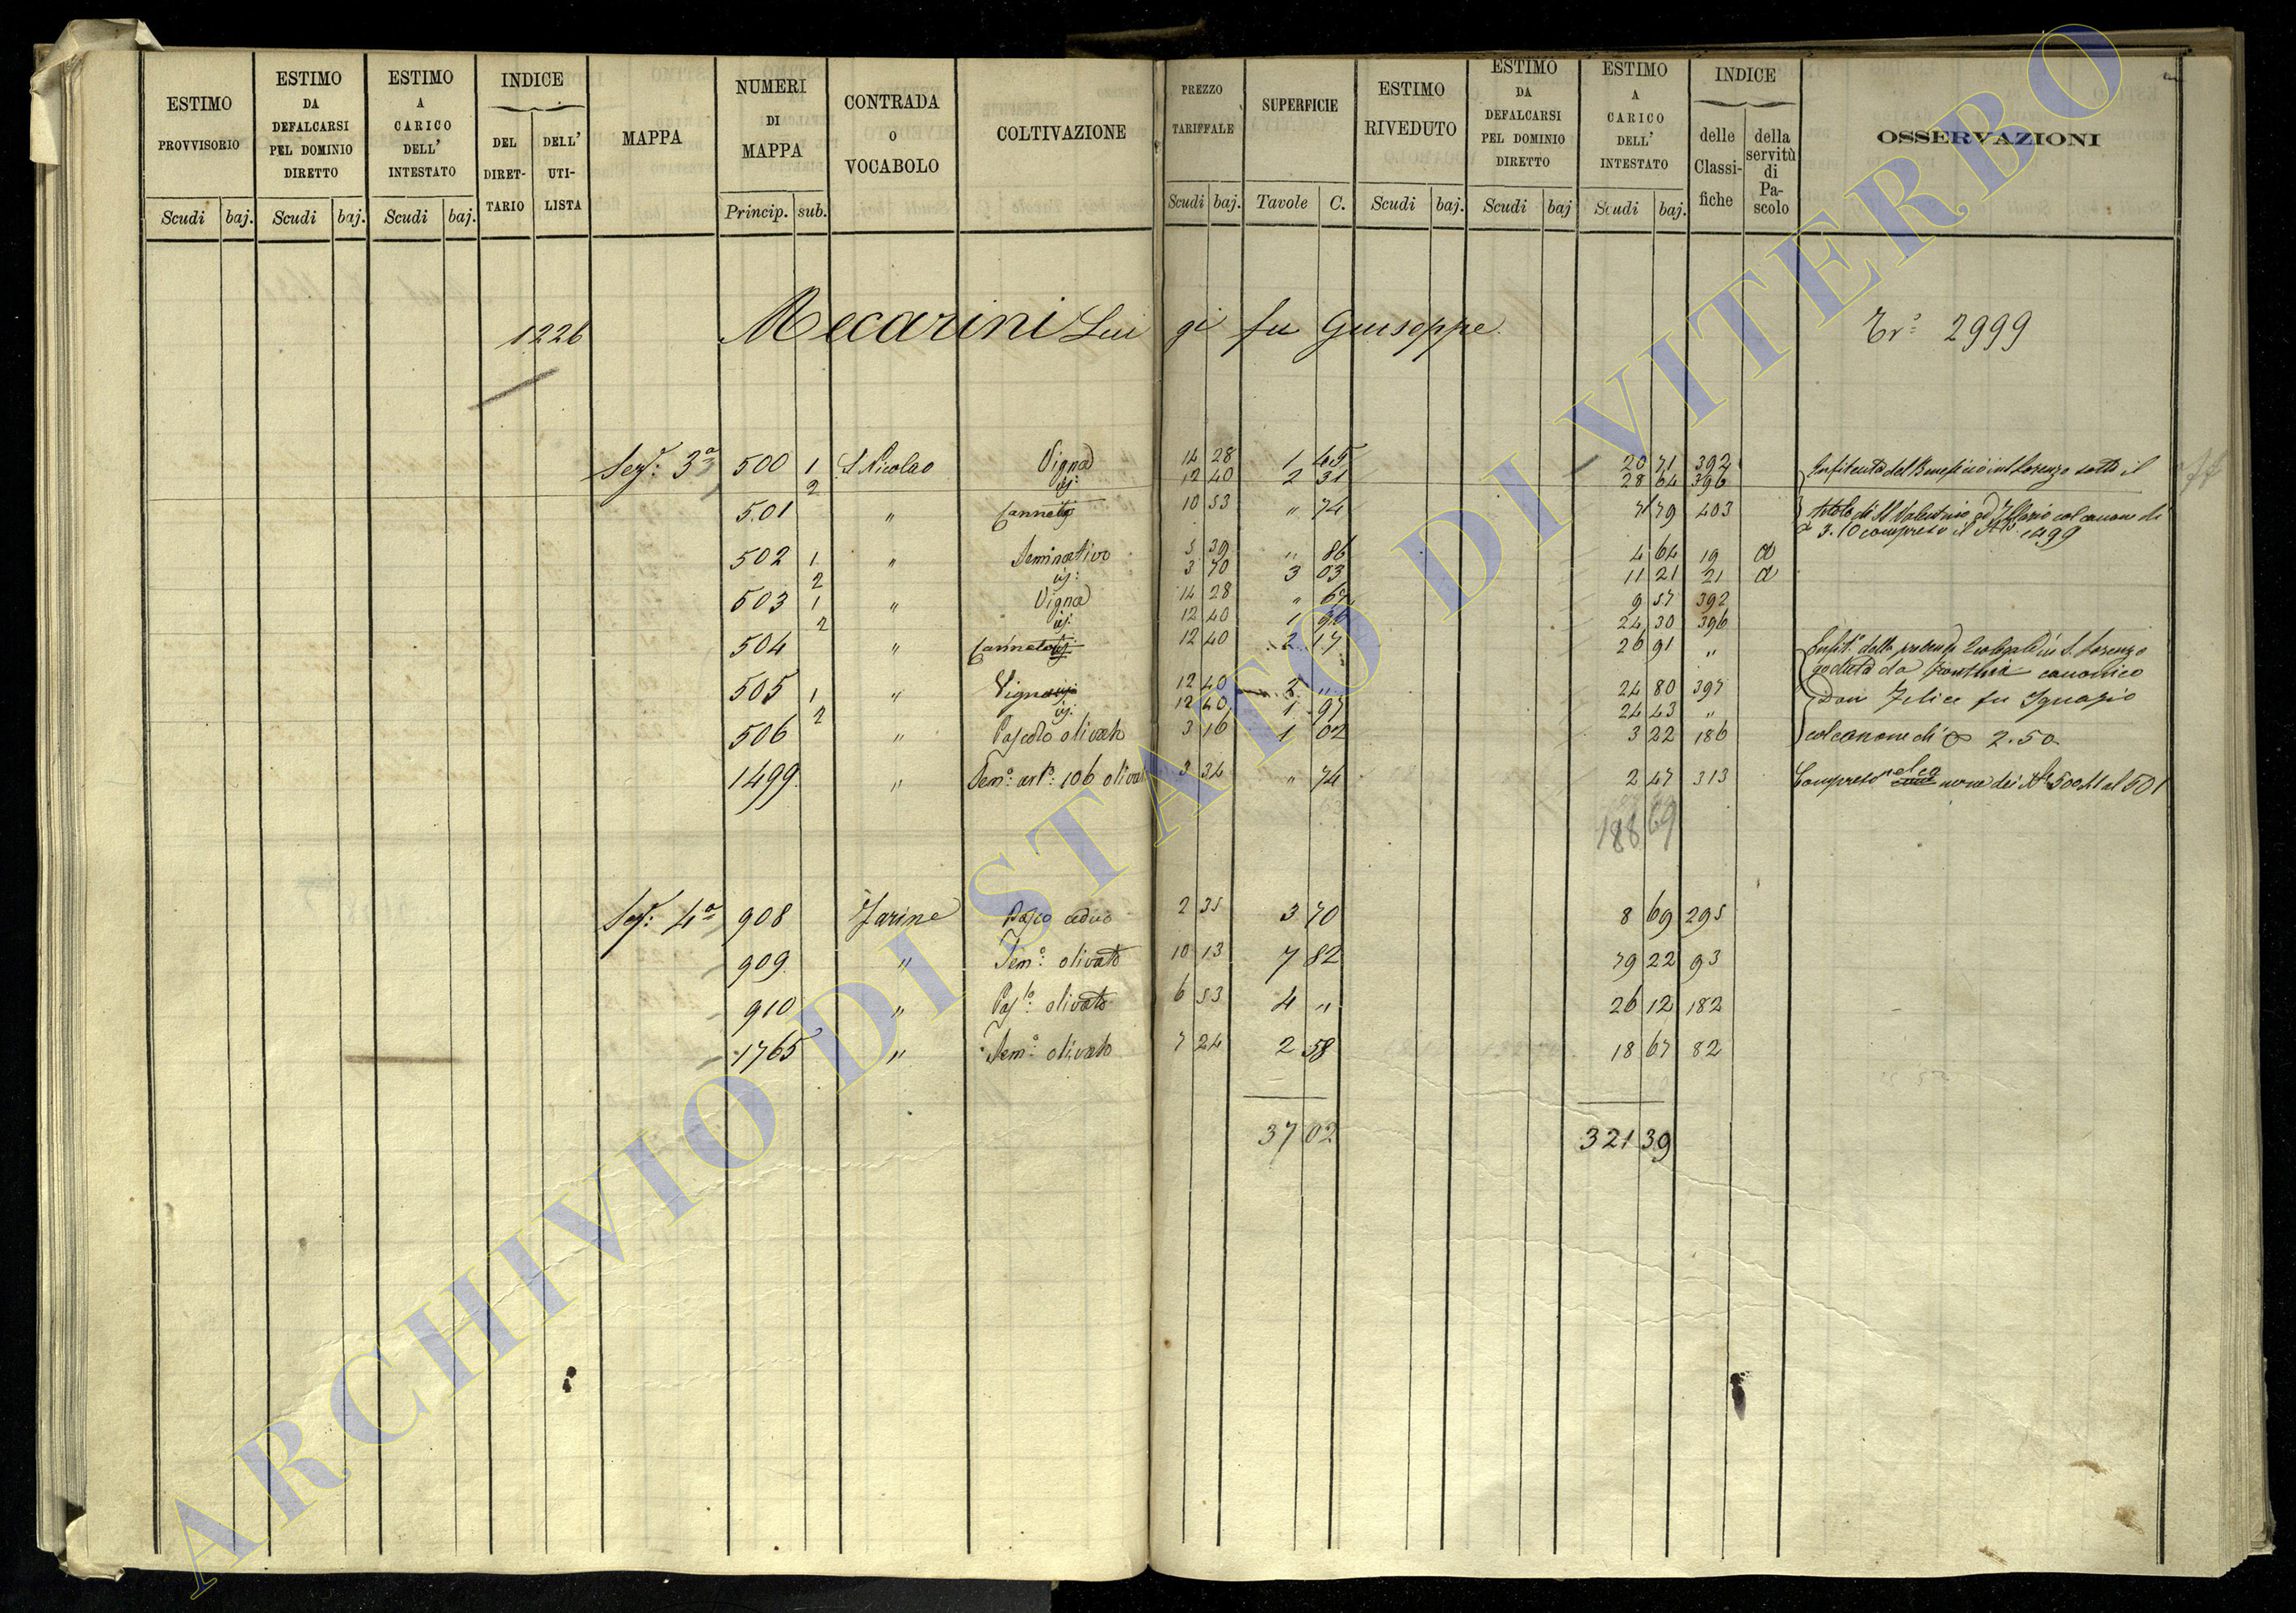 ESTIMO PROVVISORIO Scudi baj. | ESTIMO DA DEFALCARSI PEL DOMINIO DIRETTO Scudi baj. | ESTIMO A CARICO DELL' INTESTATO Scudi baj. | INDICE DEL DIRETTARIO DELL' UTILISTA | MAPPA | NUMERI DI MAPPA Princip. sub. | CONTRADA O VOCABOLO | COLTIVAZIONE | PREZZO TARIFFALE Scudi baj. | SUPERFICIE Tavole C. | ESTIMO RIVEDUTO Scudi baj. | ESTIMO DA DEFALCARSI PEL DOMINIO DIRETTO Scudi baj | ESTIMO A CARICO DELL' INTESTATO Scudi baj. | INDICE delle Classifiche della servitù di Pascolo | OSSERVAZIONI
1226 Mecarini Luigi fu Giuseppe. 2999
Sez: 3ª 500 1 S. Nicolao Vigna 14 28 1 45 20 71 392 Enfiteuta del Beneficio in S. Lorenzo sotto il
2 id: 12 40 2 31 28 64 396
501 " Canneto 10 53 " 74 7 79 403 titolo di SS Valentino ed Illario col canone di
3.10 compreso il N° 1499
502 1 " Seminativo 5 39 " 86 4 64 19 a
2 id: 3 70 3 03 11 21 21 a
503 1 " Vigna 14 28 " 67 9 57 392
2 id: 12 40 1 96 24 30 396
504 " Canneto 12 40 2 17 26 91 " Enfit: della prebenda Teologale in S. Lorenzo
goduta da canonico
505 1 " Vigna 12 40 2 " 24 80 397 Don Felice fu Ignazio
2 id: 12 40 1 97 24 43 "
506 " Pascolo olivato 3 16 1 02 3 22 186 col canone di 2.50
1499 " Sem: art: 106 olivato 3 34 " 74 2 47 313 Compreso nel canone dei N° 500 al 501
188 69
Sez: 4ª 908 Farine Bosco ceduo 2 35 3 70 8 69 295
909 " Sem: olivato 10 13 7 82 79 22 93
910 " Pas: olivato 6 53 4 " 26 12 182
1765 " Sem: olivato 7 24 2 58 18 67 82
37 02 321 39
ARCHIVIO DI STATO DI VITERBO